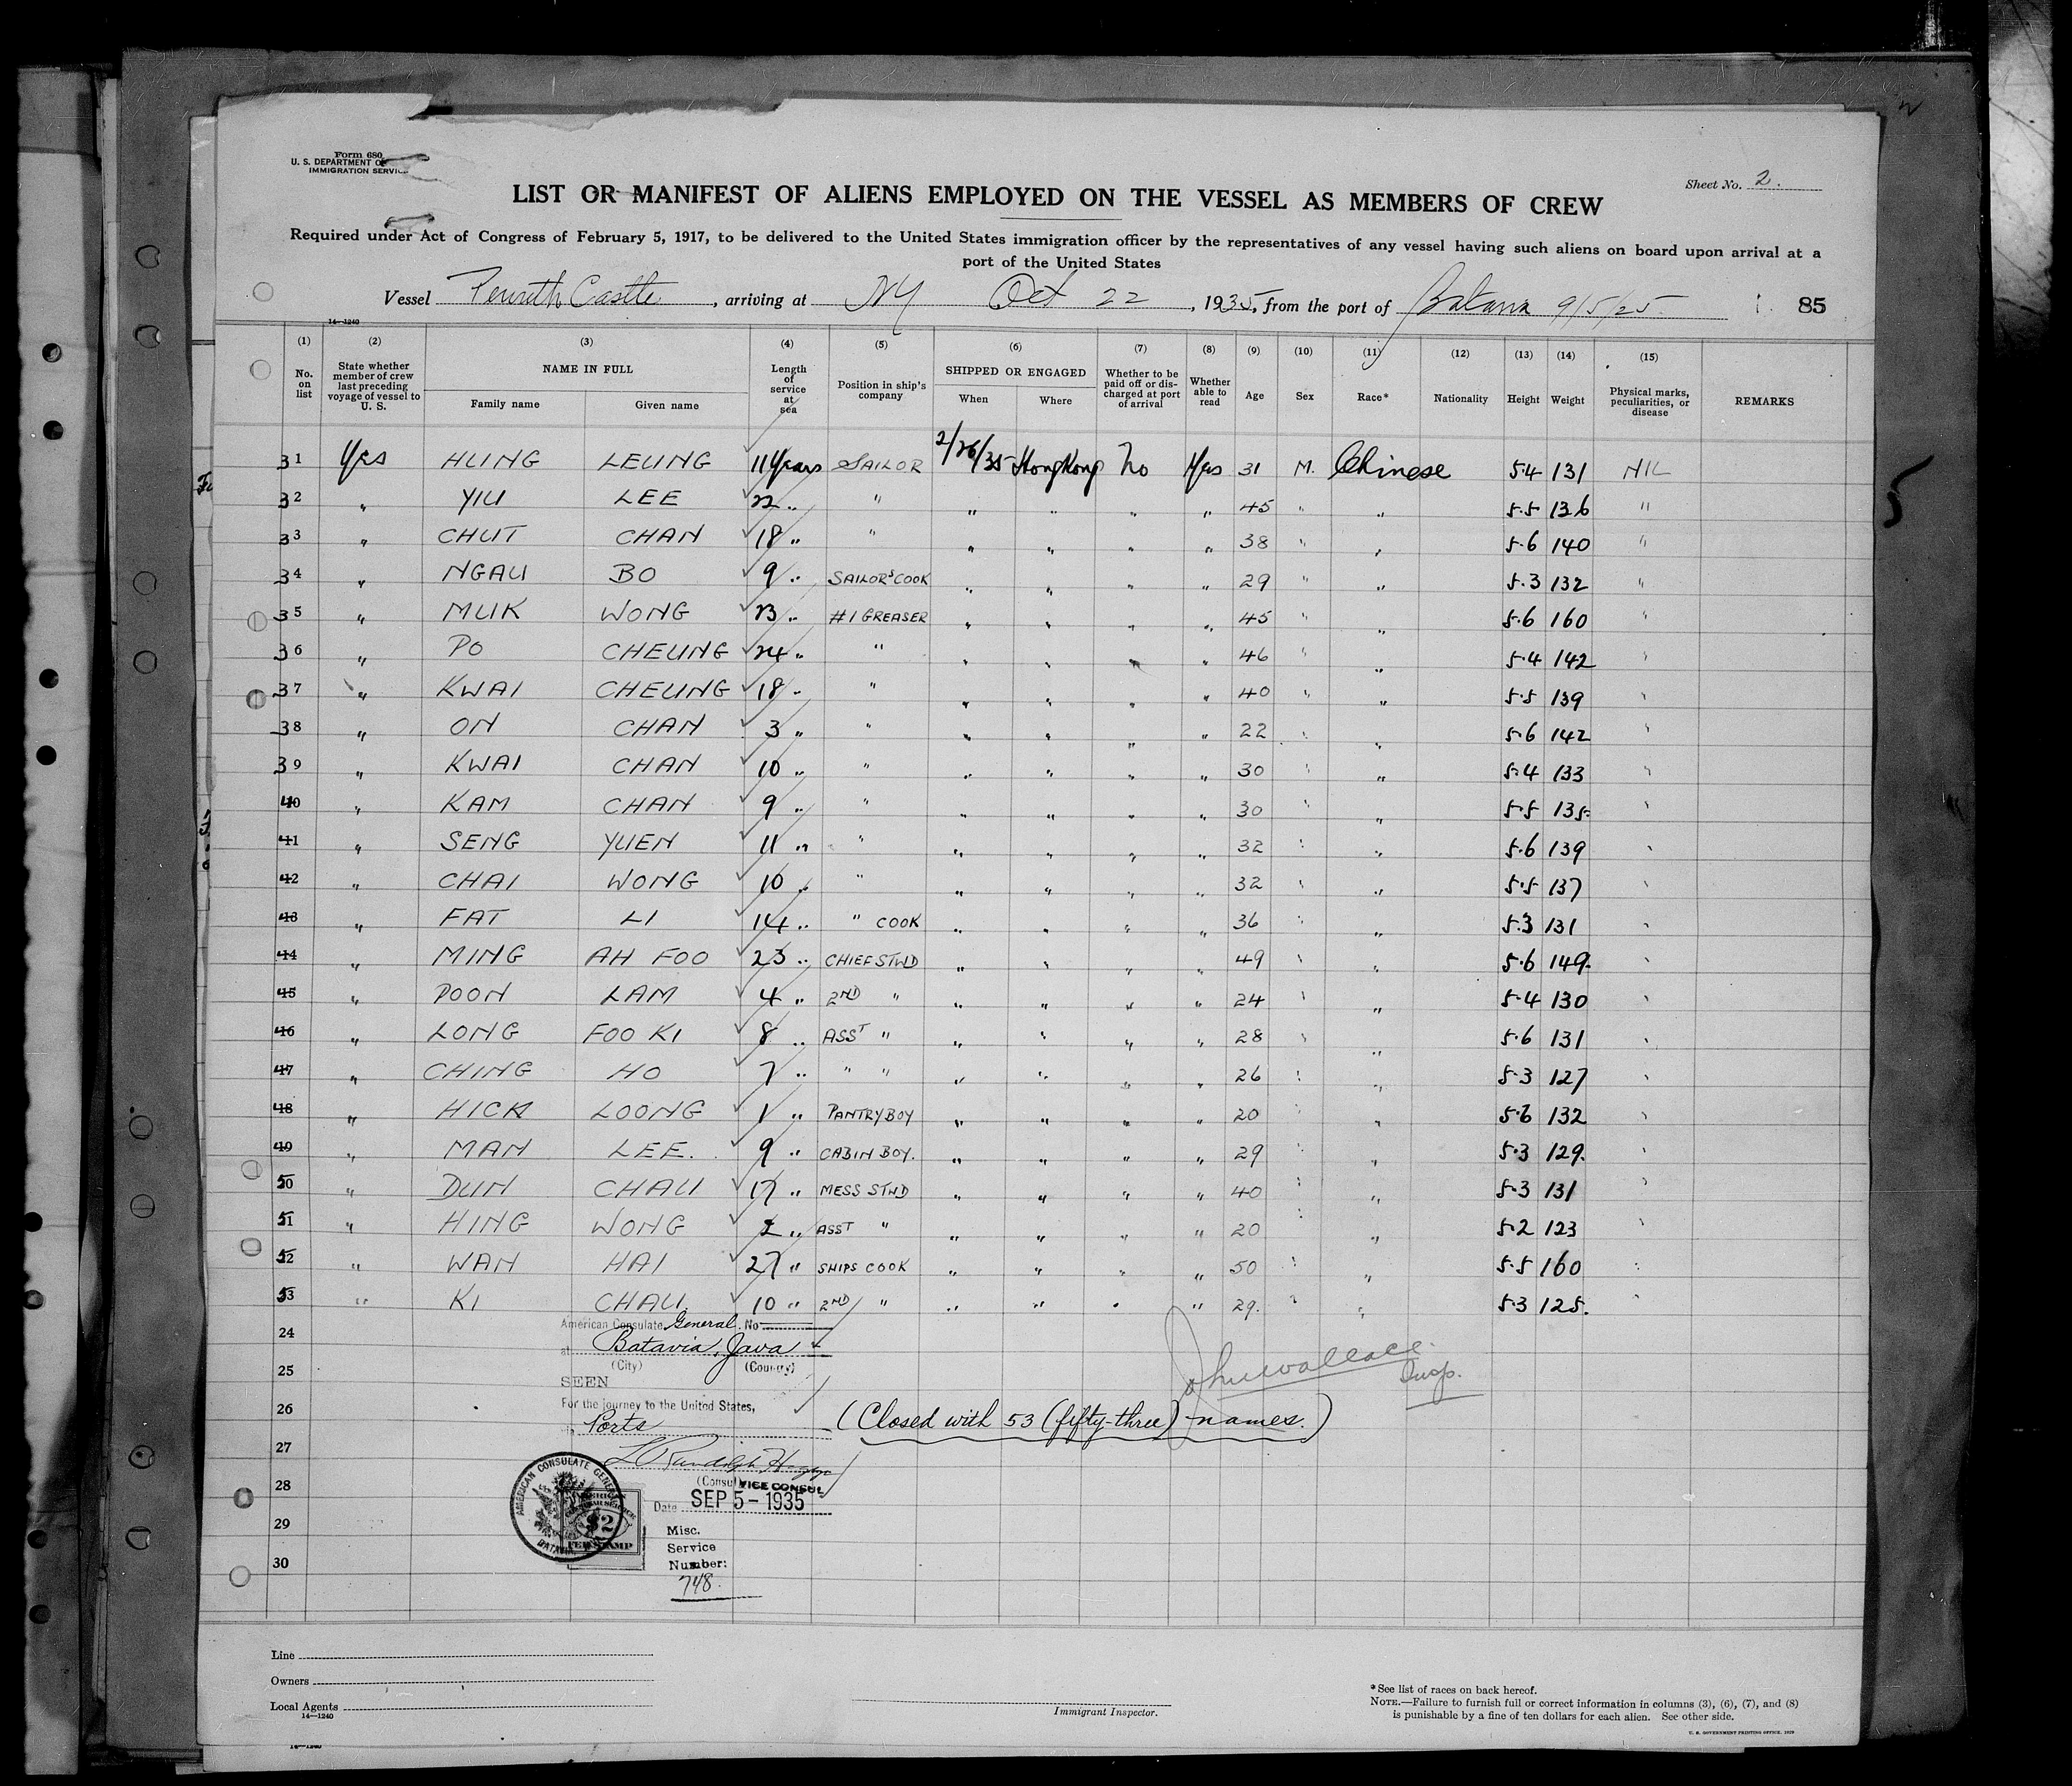 Form 680
U. S. DEPARTMENT OF
IMMIGRATION SERVICE
Sheet No. 2.
LIST OR MANIFEST OF ALIENS EMPLOYED ON THE VESSEL AS MEMBERS OF CREW
Required under Act of Congress of February 5, 1917, to be delivered to the United States immigration officer by the representatives of any vessel having such aliens on board upon arrival at a
port of the United States
Vessel Penrith Castle, arriving at NY Oct 22, 1935, from the port of Batavia 9/5/25. 85
14—1240
(1) (2) (3) (4) (5) (6) (7) (8) (9) (10) (11) (12) (13) (14) (15)
No. on list State whether member of crew last preceding voyage of vessel to U. S. NAME IN FULL Family name Given name Length of service at sea Position in ship's company SHIPPED OR ENGAGED When Where Whether to be paid off or discharged at port of arrival Whether able to read Age Sex Race* Nationality Height Weight Physical marks, peculiarities, or disease REMARKS
31 Yes HUNG LEUNG 11 Years SAILOR 2/26/35 HongKong No Yes 31 M. Chinese 5.4 131 NIL
32 " YIU LEE 22 " " " " " " 45 " " 5.5 136 "
33 " CHUT CHAN 18 " " " " " " 38 " " 5.6 140 "
34 " NGAU BO 9 " SAILORS COOK " " " " 29 " " 5.3 132 "
35 " MUK WONG 23 " #1 GREASER " " " " 45 " " 5.6 160 "
36 " PO CHEUNG 24 " " " " " " 46 " " 5.4 142 "
37 " KWAI CHEUNG 18 " " " " " " 40 " " 5.5 139 "
38 " ON CHAN 3 " " " " " " 22 " " 5.6 142 "
39 " KWAI CHAN 10 " " " " " " 30 " " 5.4 133 "
40 " KAM CHAN 9 " " " " " " 30 " " 5.5 135. "
41 " SENG YUEN 11 " " " " " " 32 " " 5.6 139 "
42 " CHAI WONG 10 " " " " " " 32 " " 5.5 137 "
43 " FAT LI 14 " " COOK " " " " 36 " " 5.3 131 "
44 " MING AH FOO 23 " CHIEF STWD " " " " 49 " " 5.6 149. "
45 " POON LAM 4 " 2ND " " " " " 24 " " 5.4 130 "
46 " LONG FOO KI 8 " ASST " " " " " 28 " " 5.6 131 "
47 " CHING HO 7 " " " " " " " 26 " " 5.3 127 "
48 " HICK LOONG 1 " PANTRY BOY " " " " 20 " " 5.6 132 "
49 " MAN LEE. 9 " CABIN BOY. " " " " 29 " " 5.3 129. "
50 " DUN CHAU 17 " MESS STWD " " " " 40 " " 5.3 131 "
51 " HING WONG 2 " ASST " " " " " 20 " " 5.2 123 "
52 " WAN HAI 27 " SHIPS COOK " " " " 50 " " 5.5 160 "
53 " KI CHAU. 10 " 2ND " " " " " 29. " " 5.3 125. "
American Consulate General, No
24
at Batavia, Java
(City) (Country)
25
John Wallace
Insp.
SEEN
For the journey to the United States,
26
Ports
(Closed with 53 (fifty-three) names.)
27
(Consul) VICE CONSUL
28
Date SEP 5 - 1935
AMERICAN CONSULATE GENERAL
BATAVIA
$2
FEE STAMP
29
Misc.
Service
Number:
748.
30
Line
Owners
Local Agents
14—1240
Immigrant Inspector.
*See list of races on back hereof.
NOTE.—Failure to furnish full or correct information in columns (3), (6), (7), and (8)
is punishable by a fine of ten dollars for each alien. See other side.
U. S. GOVERNMENT PRINTING OFFICE. 1929